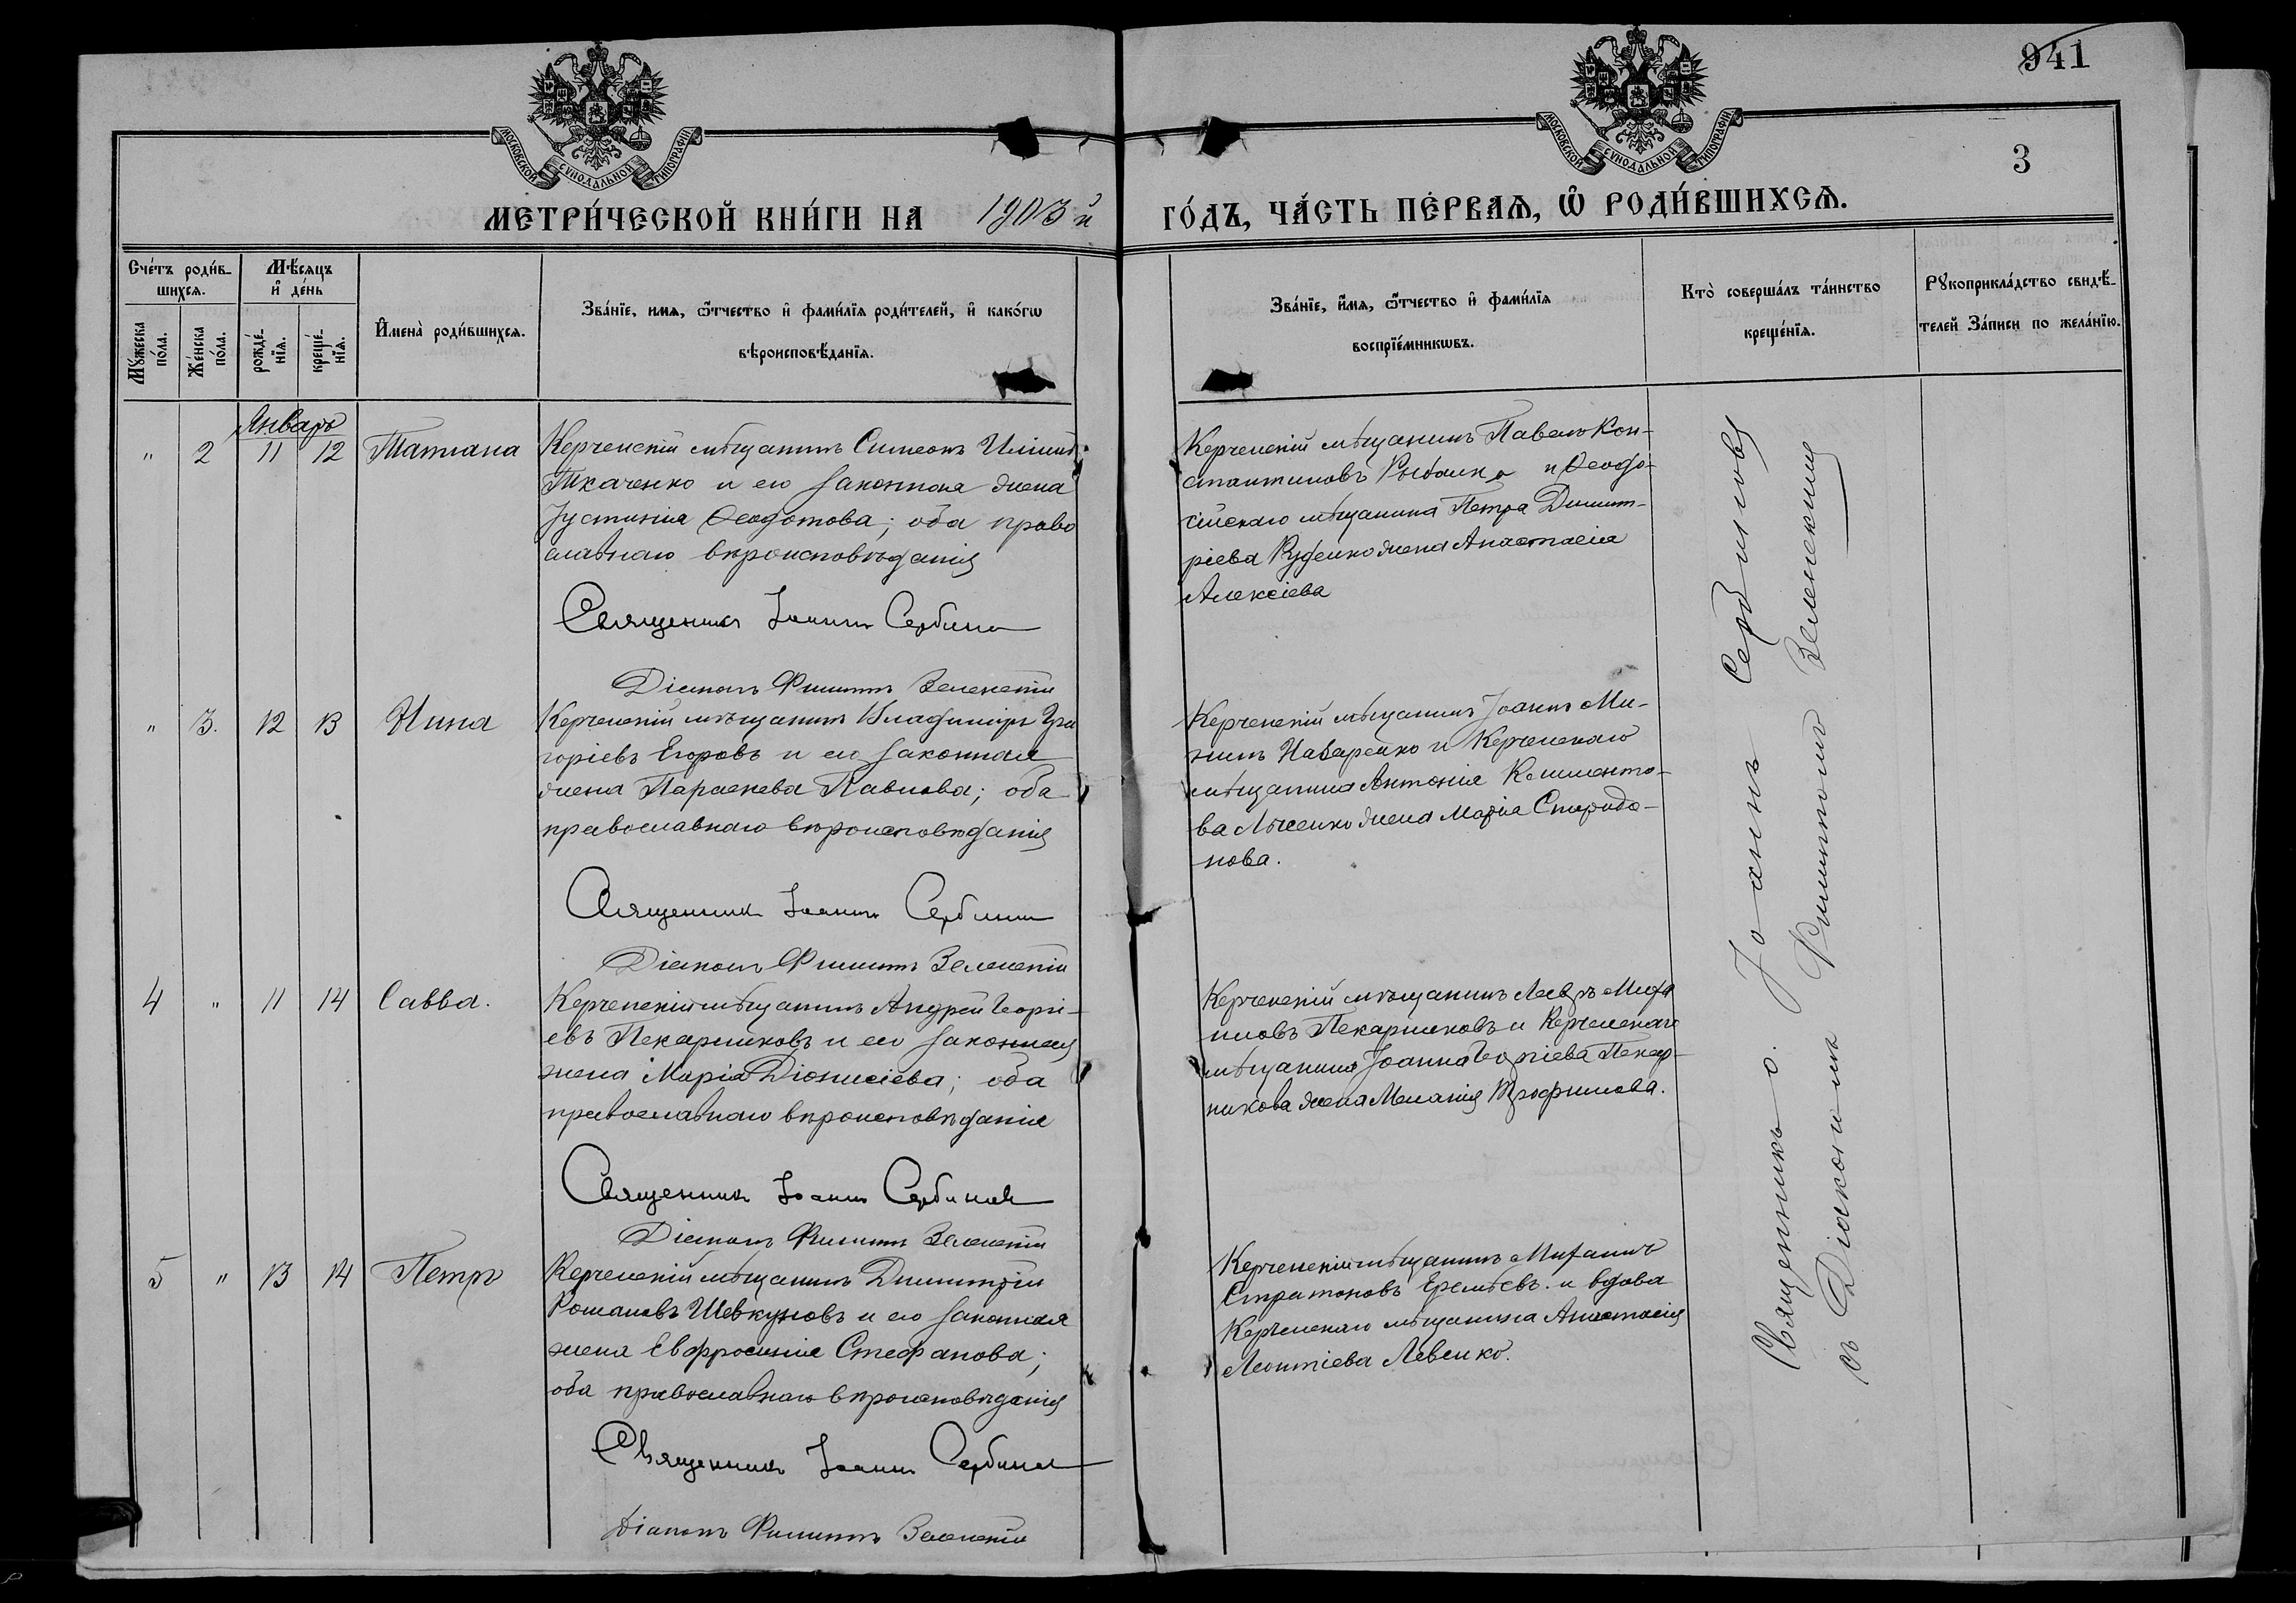 941
3
МОСКОВСКОЙ СѴНОДАЛЬНОЙ ТИПОГРАФІИ
МОСКОВСКОЙ СѴНОДАЛЬНОЙ ТИПОГРАФІИ
МЕТРИ́ЧЕСКОЙ КНИ́ГИ НА 1903 й ГО́ДЪ, ЧА́СТЬ ПЕ́РВАѦ, Ѡ҆ РОДИ́ВШИХСѦ.
Сче́тъ роди́в-
шихсѧ.
Мꙋ́жеска
по́ла.
Же́нска
по́ла.
Мѣ́сѧцъ
и҆ де́нь
рожде́-
нїѧ.
креще́-
нїѧ.
И҆мена̀ роди́вшихсѧ.
Зва́нїе, имѧ, ѻ҆́тчество и҆ фами́лїѧ роди́телей, и҆ како́гѡ
вѣроисповѣ́данїѧ.
Зва́нїе, и҆́мѧ, ѻ҆́тчество и҆ фами́лїѧ
воспрїе́мникѡвъ.
Кто̀ соверша́лъ та́инство
креще́нїѧ.
Рꙋкоприкла́дство свидѣ́-
телей За́писи по жела́нїю.
Январь
" 2 11 12 Татiана
Керченскій мѣщанинъ Симеонъ
Ткаченко и его законная жена
Іустинія Ѳеодотова; оба право
славнаго вѣроисповѣданія
Священникъ Іоаннъ Сербиновъ
Діаконъ Филиппъ Зеленскій
Керченскій мѣщанинъ Павелъ Кон-
стантиновъ Рыбалка и Ѳеодо-
сійскаго мѣщанина Петра Димит-
ріева Руденко жена Анастасія
Алексіева
" 3. 12 13 Нина
Керченскій мѣщанинъ Владиміръ Гри
горіевъ Егоровъ и его законная
жена Параскева Павлова; оба
православнаго вѣроисповѣданія
Священникъ Іоаннъ Сербиновъ
Діаконъ Филиппъ Зеленскій
Керченскій мѣщанинъ Іоаннъ Ми-
нинъ Назаренко и Керченскаго
мѣщанина Антонія Климентo-
ва жена Марія Спиридо-
нова.
4 " 11 14 Савва.
Керченскій мѣщанинъ Андрей Георгі-
евъ Пекарниковъ и его законная
жена Марія Діонисіева; оба
православнаго вѣроисповѣданія
Священникъ Іоаннъ Сербиновъ
Діаконъ Филиппъ Зеленскій
Керченскій мѣщанинъ Миха
иловъ Пекарниковъ и Керченскаго
мѣщанина Іоанна Георгіева Пекар-
никова жена Меланія Трофимова.
5 " 13 14 Петръ
Керченскій мѣщанинъ Димитрій
Романовъ Шевкуновъ и его законная
жена Евфросинія Стефанова;
оба православнаго вѣроисповѣданія
Священникъ Іоаннъ Сербиновъ
Діаконъ Филиппъ Зеленскій
Керченскій мѣщанинъ Михаилъ
Стратоновъ Еремѣевъ. и вдова
Керченскаго мѣщанина Анастасія
Леонтіева Левенко.
Священникъ о. Іоаннъ Сербиновъ
съ Діакономъ Филиппомъ Зеленскимъ